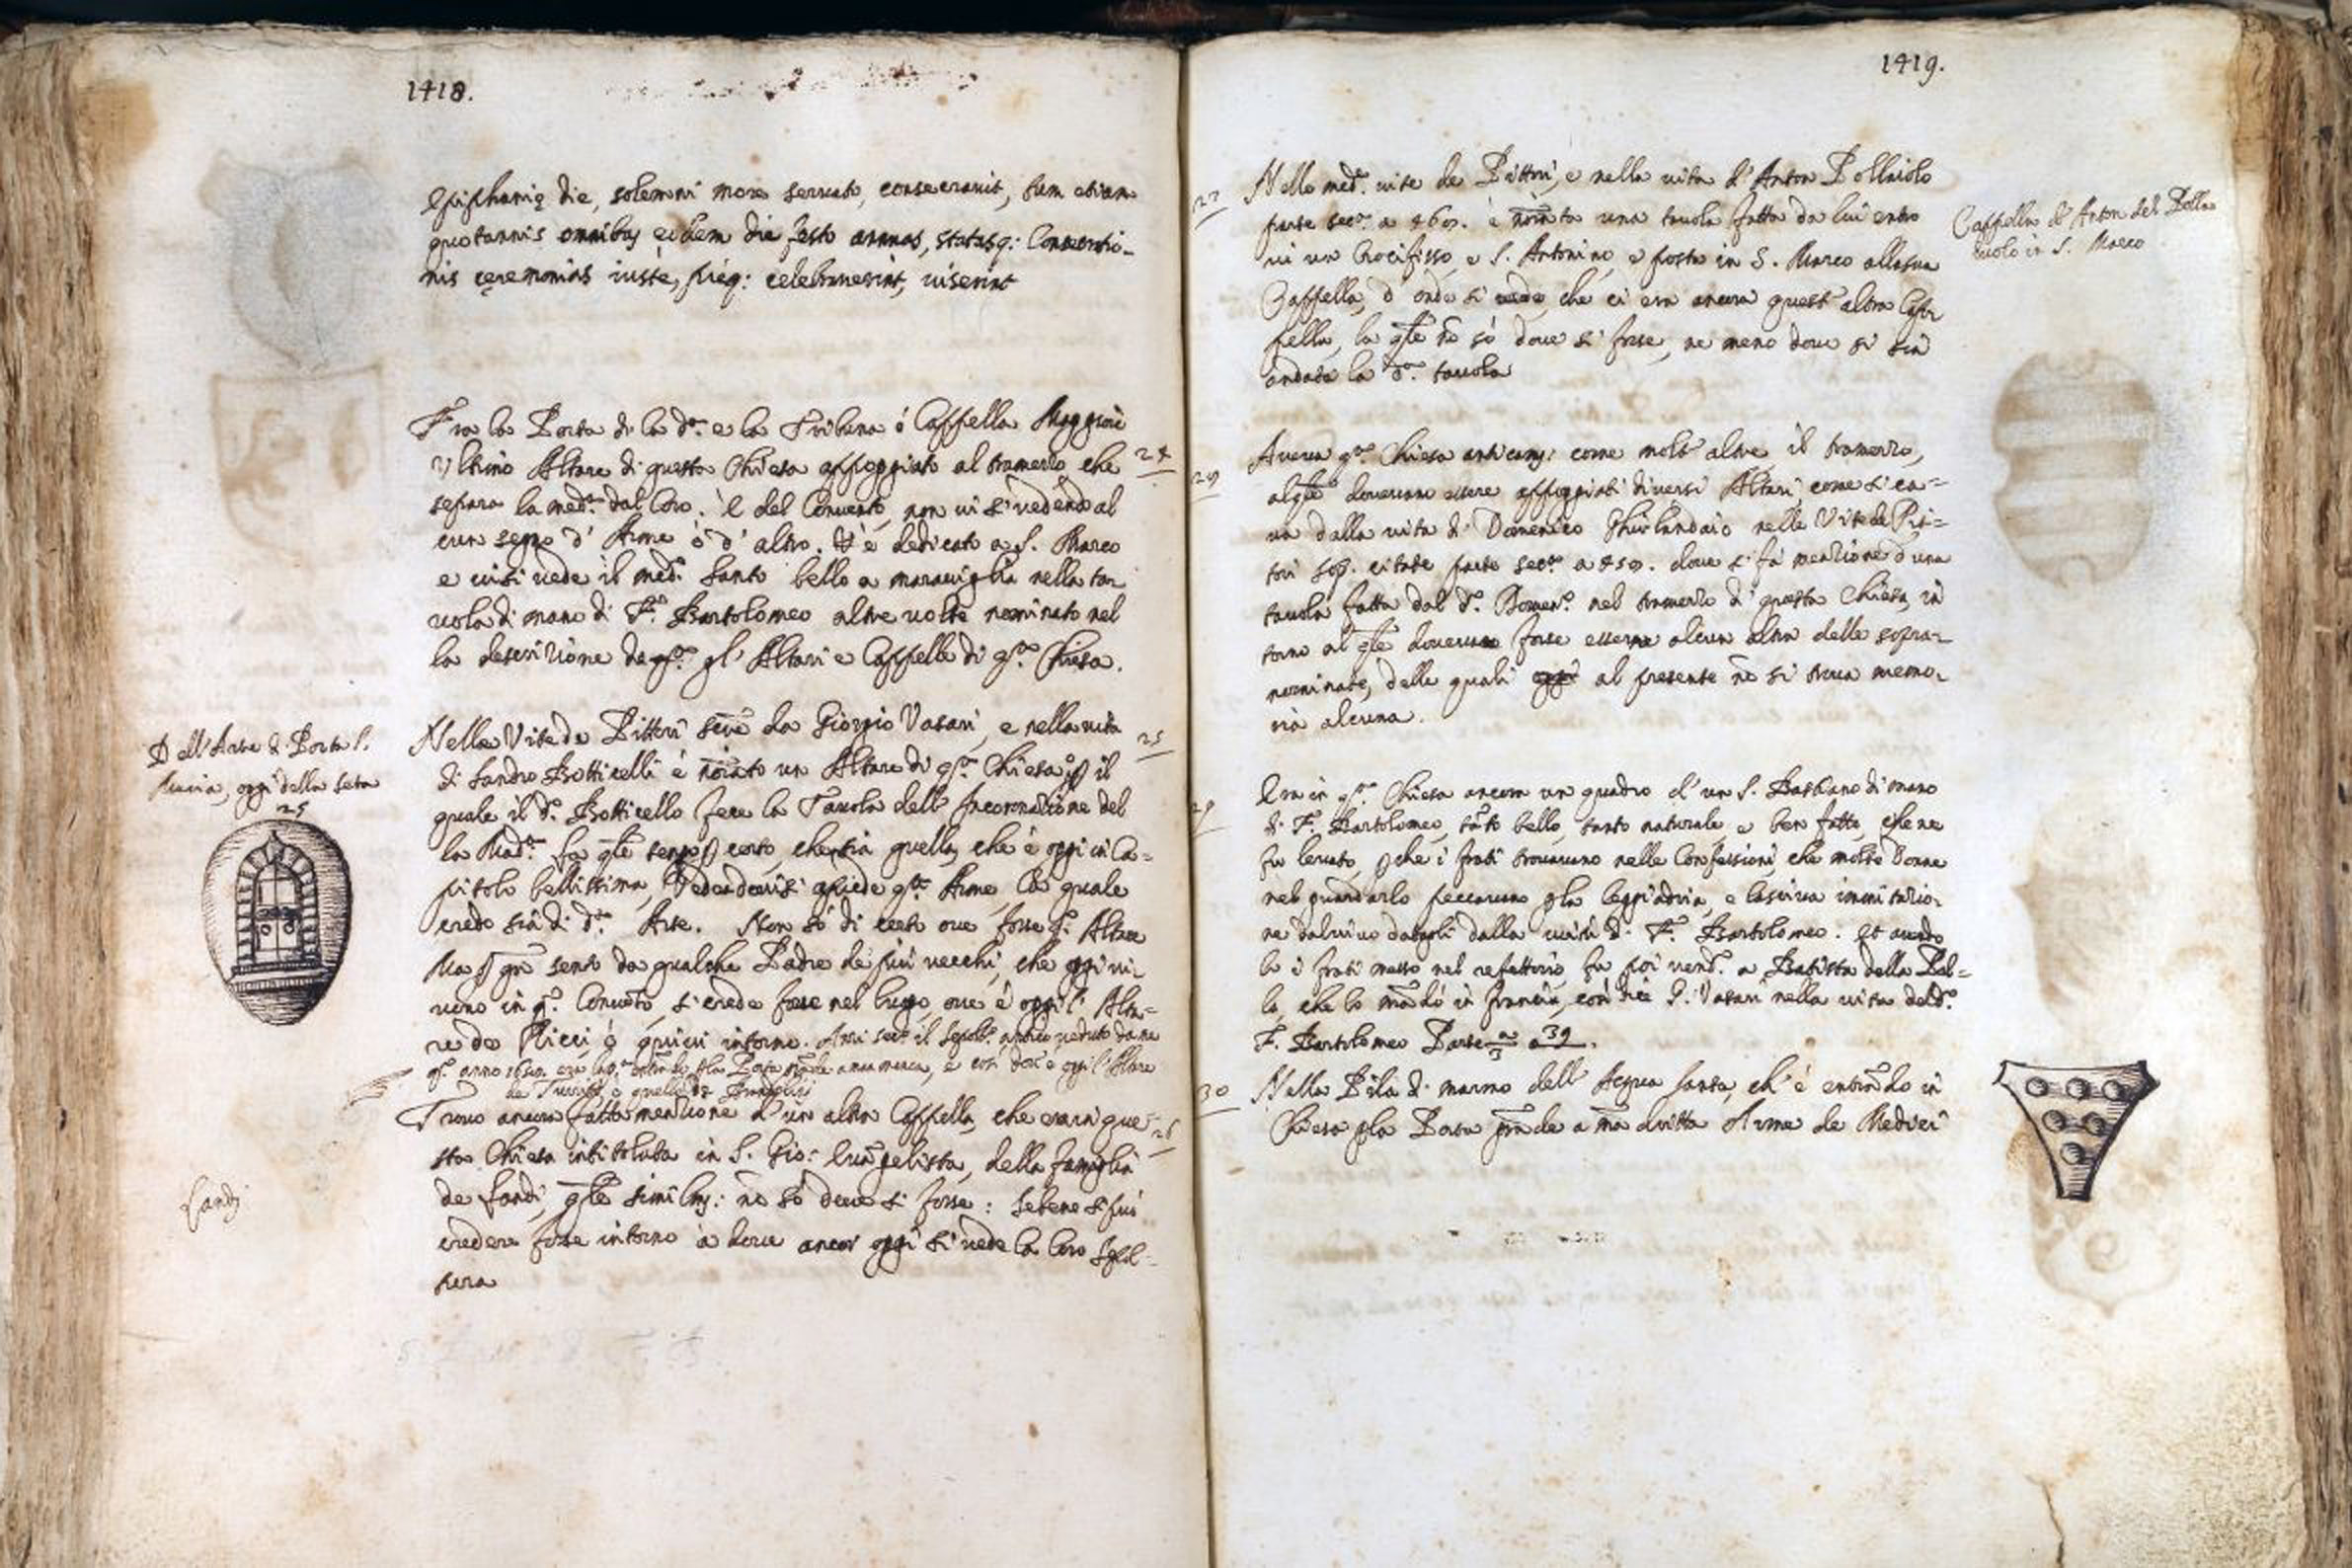 1418.
Epiphanię die, solemni more servato, consecravit, tum etiam
quotannis omnibus eidem die festo annuas, statasq: Consecratio-
nis ceremonias iustè, pièq: celebraverint, viserint
Fra la Porta di la d.ª e la Tribuna ó Cappella Maggiore
Ultimo Altare di questa Chiesa appoggiato al tramezzo che 24
separa la med.ª dal Coro. È del Convento, non vi si vedendo al
cun segno d' Arme ò d' altro. È dedicato a S. Marco
e vi si vede il med.º Santo bello a maraviglia nella ta
vola di mano di F. Bartolomeo altre volte nominato nel
la descrizione de gl' Altari e Cappelle di q.ª Chiesa.
Dell'Arte di Porta S.
Maria, oggi della Seta
25
Nelle Vite de Pittori da Giorgio Vasari, e nella vita 25
di Sandro Botticelli è noĩato un Altare di q.ª Chiesa il
quale il d.º Botticello fece la Tavola dell' Incoronazione del
la Mad.ª certo, che sia quella, che è oggi in Ca=
pitolo bellissima, Vedendovisi a piede q.ª Arme, la quale
credo sia di d.ª Arte. Non sò di certo ove fosse q.º Altare
Ma sento da qualche Padre de più vecchi, che oggi vi-
vono in q.º Convẽto, si crede fosse nel luogo, ove è oggi l' Alta=
re de Ricci ó quivi intorno. Anzi il antico veduto da me
q.º anno e così dov'è oggi l'Altare
de
Trovo ancora fatta menzione d' un altra Cappella, che era in que= 26
sta Chiesa intitolata in S. Gio: Evãgelista, della famiglia
Landi
de Landi, q̃le similm: nõ sò dove si fosse: sebene si può
credere fosse intorno à dove ancor oggi si vede la loro Sepol=
tura
1419.
27 Nelle med.e vite de Pittori, e nella vita d' Anton Pollaiolo
Cappella d' Anton del Polla
iuolo in S. Marco
parte sec.ª a 467. è noĩata una tavola fatta da lui entro
vi un Crocifisso e S. Antonino, e posta in S. Marco alla sua
Cappella, d' onde si vede, che ci era ancora quest' altra Cap-
pella, la q̃le nõ sò dove si fosse, ne meno dove si sia
andata la d.ª tavola
28 Aveva q.ª Chiesa anticam: come molt' altre, il tramezzo,
al q̃le dovevano essere appoggiati diversi Altari, come si ca=
va dalla vita di Domenico Ghirlandaio nelle Vite de Pit=
tori sop. citate parte sec.ª a 459. dove si fa menzione d' una
tavola fatta dal d.º Domen.º nel tramezzo di questa Chiesa, in
torno al q̃le doveva forse esserne alcun altra delle sopra-
nominate, delle quali al presente nõ si trova memo-
ria alcuna.
29 Era in q.ª Chiesa ancora un quadro d' un S. Bastiano di mano
di F. Bartolomeo, tãto bello, tanto naturale e ben fatto, che ne
fu levato, che i frati trovavano nelle Confessioni, che molte Donne
nel guardarlo peccavano la leggiadria, e lasciva immitazio-
ne dal vivo datogli dalla virtù di F. Bartolomeo. Et avendo
lo i frati messo nel refettorio, fu poi vend.º a Batista della Pal=
la, che lo mãdò in Francia, così dice G. Vasari nella vita del d.º
F. Bartolomeo Parte 3ª a 39.
30 Nella Pila di marmo dell' Acqua Santa, ch' è entrãdo in
Chiesa la Porta grãde a mã dritta Arme de Medici